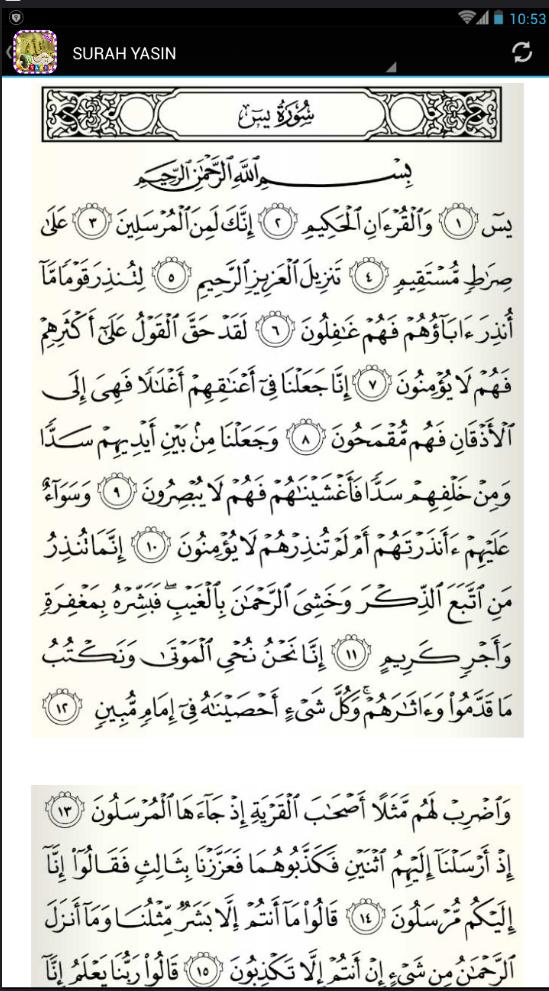 10:53
SURAH YASIN
سُورَةُ يسٓ
بِسْمِ ٱللَّهِ ٱلرَّحْمَٰنِ ٱلرَّحِيمِ
يسٓ ١ وَٱلْقُرْءَانِ ٱلْحَكِيمِ ٢ إِنَّكَ لَمِنَ ٱلْمُرْسَلِينَ ٣ عَلَىٰ
صِرَٰطٍ مُّسْتَقِيمٍ ٤ تَنزِيلَ ٱلْعَزِيزِ ٱلرَّحِيمِ ٥ لِتُنذِرَ قَوْمًا مَّآ
أُنذِرَ ءَابَآؤُهُمْ فَهُمْ غَٰفِلُونَ ٦ لَقَدْ حَقَّ ٱلْقَوْلُ عَلَىٰٓ أَكْثَرِهِمْ
فَهُمْ لَا يُؤْمِنُونَ ٧ إِنَّا جَعَلْنَا فِىٓ أَعْنَٰقِهِمْ أَغْلَٰلًا فَهِىَ إِلَى
ٱلْأَذْقَانِ فَهُم مُّقْمَحُونَ ٨ وَجَعَلْنَا مِنۢ بَيْنِ أَيْدِيهِمْ سَدًّا
وَمِنْ خَلْفِهِمْ سَدًّا فَأَغْشَيْنَٰهُمْ فَهُمْ لَا يُبْصِرُونَ ٩ وَسَوَآءٌ
عَلَيْهِمْ ءَأَنذَرْتَهُمْ أَمْ لَمْ تُنذِرْهُمْ لَا يُؤْمِنُونَ ١٠ إِنَّمَا تُنذِرُ
مَنِ ٱتَّبَعَ ٱلذِّكْرَ وَخَشِىَ ٱلرَّحْمَٰنَ بِٱلْغَيْبِ ۖ فَبَشِّرْهُ بِمَغْفِرَةٍ
وَأَجْرٍ كَرِيمٍ ١١ إِنَّا نَحْنُ نُحْىِ ٱلْمَوْتَىٰ وَنَكْتُبُ
مَا قَدَّمُوا۟ وَءَاثَٰرَهُمْ ۚ وَكُلَّ شَىْءٍ أَحْصَيْنَٰهُ فِىٓ إِمَامٍ مُّبِينٍ ١٢
وَٱضْرِبْ لَهُم مَّثَلًا أَصْحَٰبَ ٱلْقَرْيَةِ إِذْ جَآءَهَا ٱلْمُرْسَلُونَ ١٣
إِذْ أَرْسَلْنَآ إِلَيْهِمُ ٱثْنَيْنِ فَكَذَّبُوهُمَا فَعَزَّزْنَا بِثَالِثٍ فَقَالُوٓا۟ إِنَّآ
إِلَيْكُم مُّرْسَلُونَ ١٤ قَالُوا۟ مَآ أَنتُمْ إِلَّا بَشَرٌ مِّثْلُنَا وَمَآ أَنزَلَ
ٱلرَّحْمَٰنُ مِن شَىْءٍ إِنْ أَنتُمْ إِلَّا تَكْذِبُونَ ١٥ قَالُوا۟ رَبُّنَا يَعْلَمُ إِنَّآ